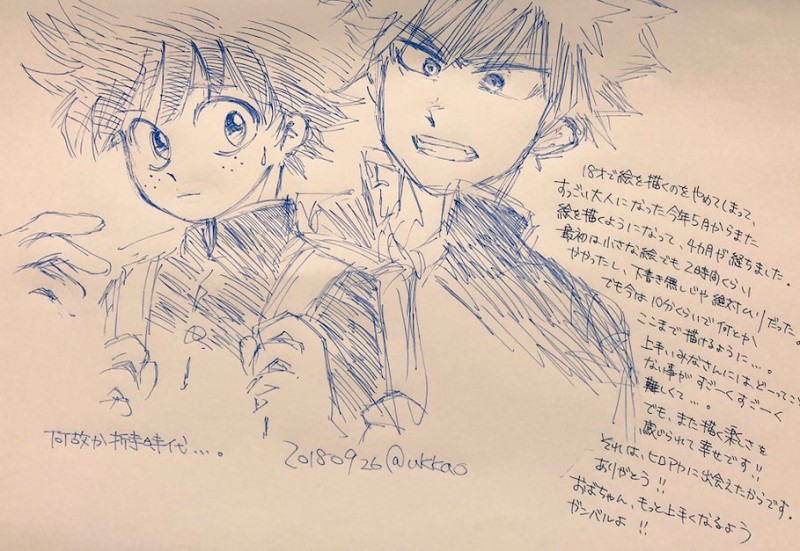 18才で絵を描くのをやめてしまって、
すっごい大人になった今年5月からまた
絵を描くようになって、4カ月が経ちました。
最初は小さな絵でも2時間くらい
かかったし、下書き無しじゃ絶対ムリだった。
でも今は10分くらいで何とか
ここまで描けるように…。
上手いみなさんにはどーってこと
ない事がすごーくすごーく
難しくて…。
でも、また描く楽しさを
感じられて幸せです!!
それは、ヒロアカに出会えたからです。
ありがとう!!
おばちゃん、もっと上手くなるよう
ガンバルよ!!
何故か折寺時代…。
20180926@ukkao